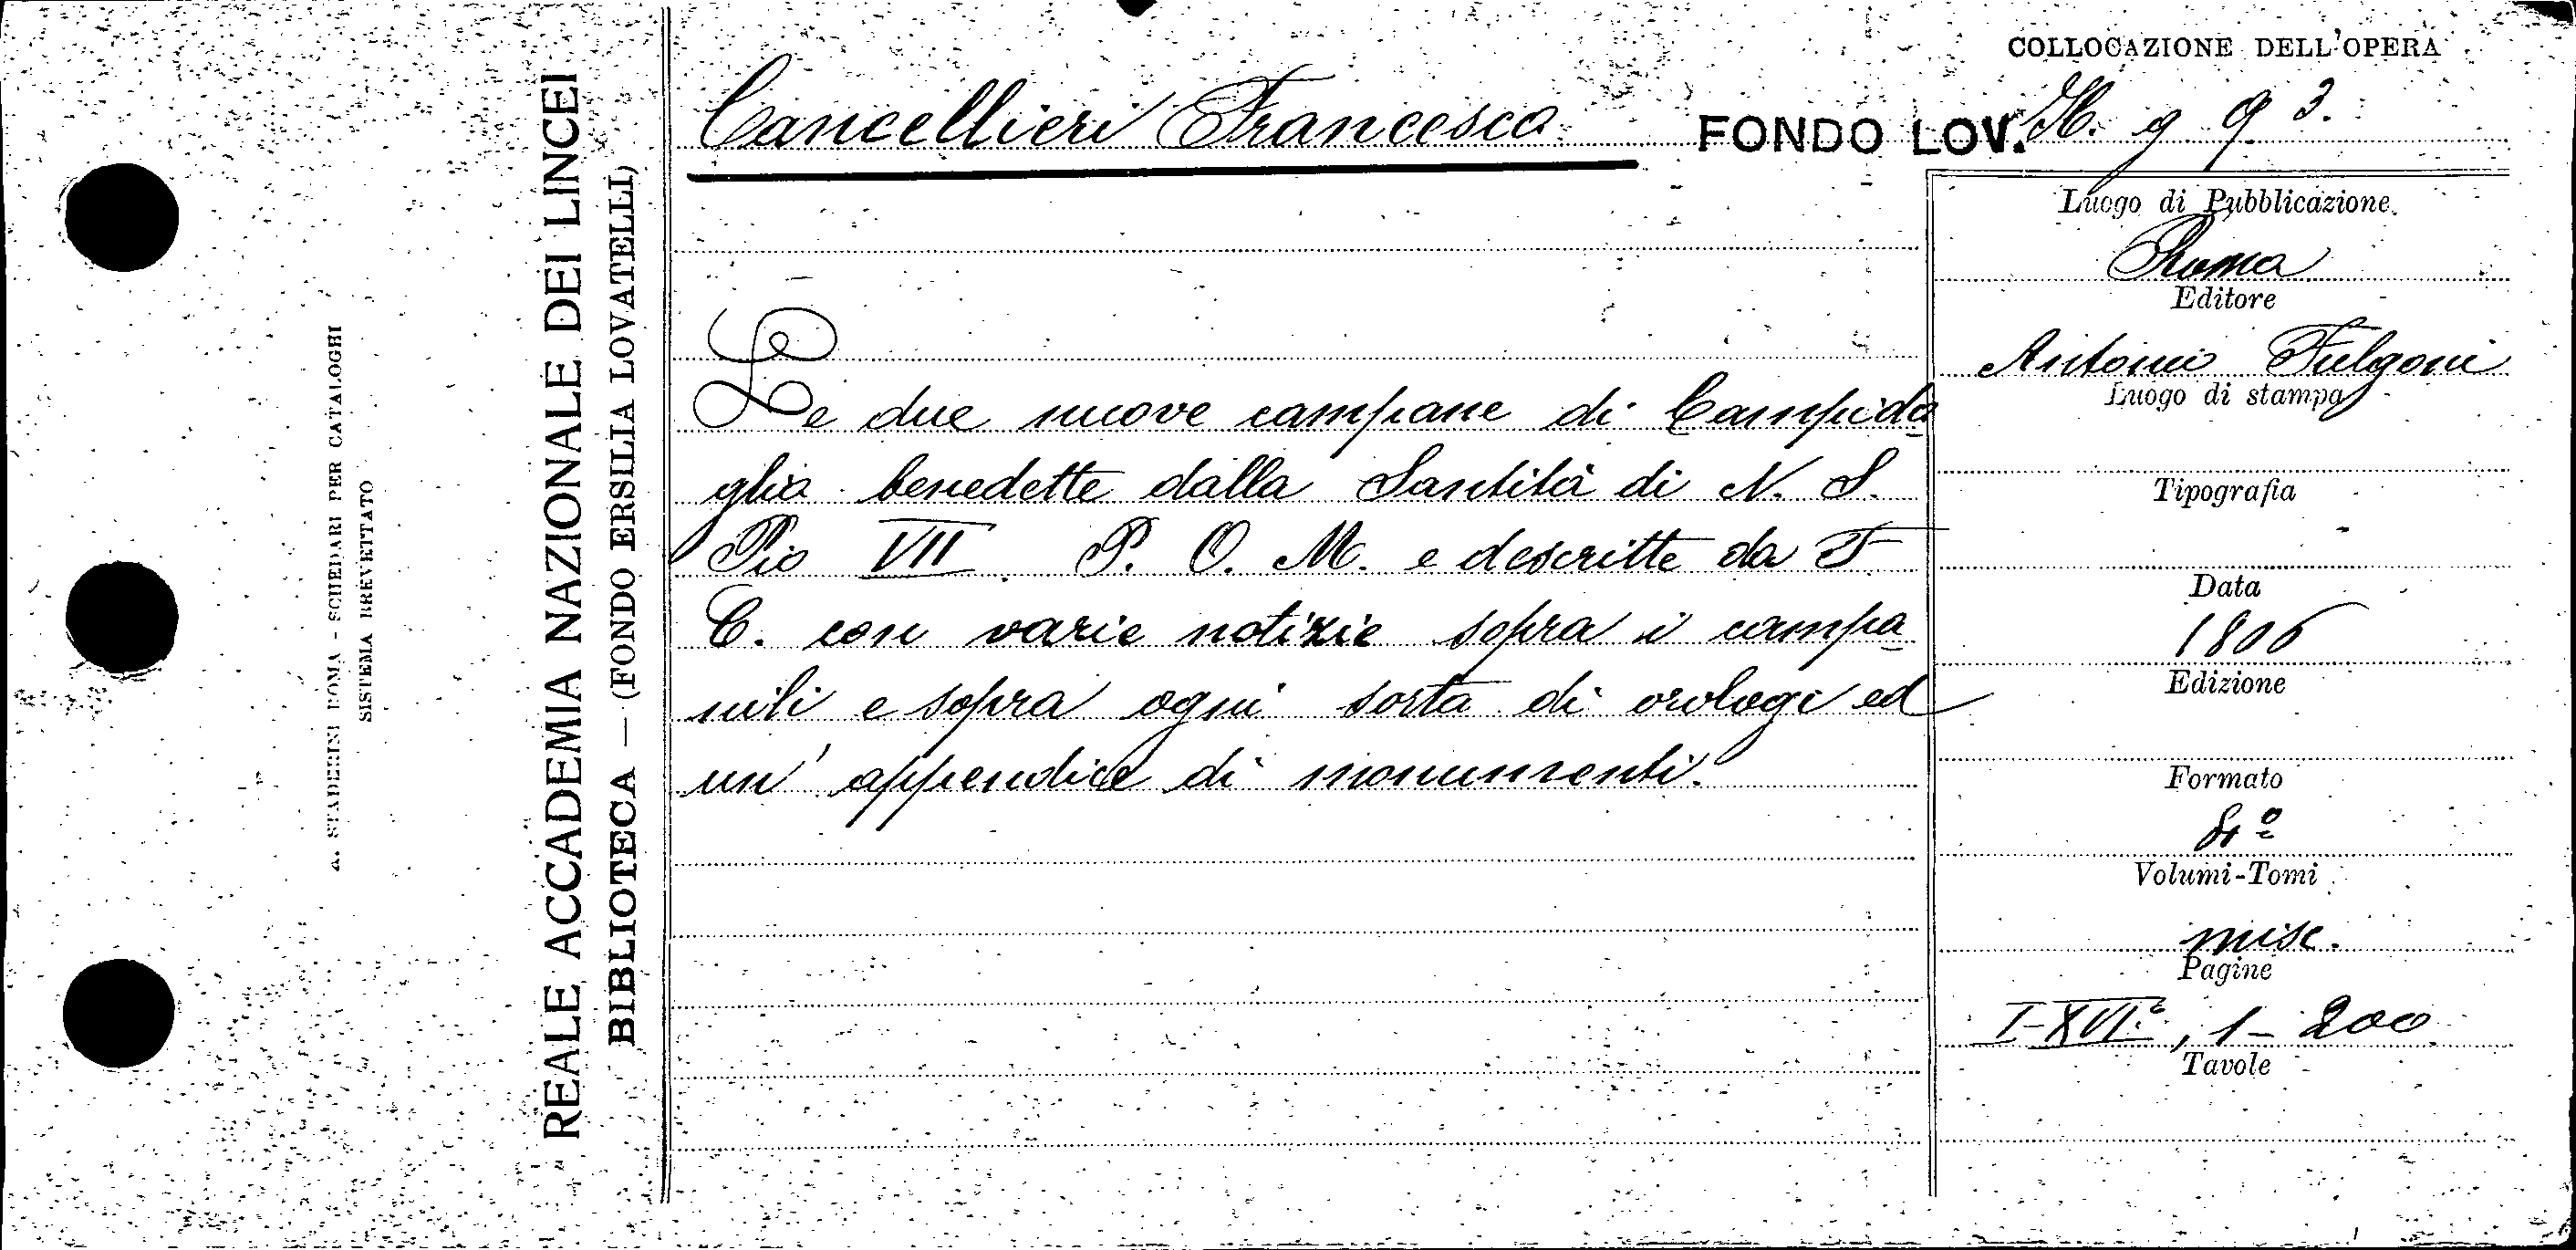 COLLOCAZIONE DELL'OPERA
Cancellieri Francesco FONDO LOV. H. g 9 3.
Le due nuove campane di Campido
glia benedette dalla Santità di N. S.
Pio VII P. O. M. e descritte da F
C. con varie notizie sopra i campa
nili e sopra ogni sorta di orologi ed
un' appendice di monumenti.
Luogo di Pubblicazione
Roma
Editore
Antonio Fulgoni
Luogo di stampa
Tipografia
Data
1806
Edizione
Formato
4º
Volumi-Tomi
misc.
Pagine
I-XVI, 1-200
Tavole
REALE ACCADEMIA NAZIONALE DEI LINCEI
BIBLIOTECA — (FONDO ERSILIA LOVATELLI)
A. STADERINI ROMA - SCHEDARI PER CATALOGHI
SISTEMA BREVETTATO